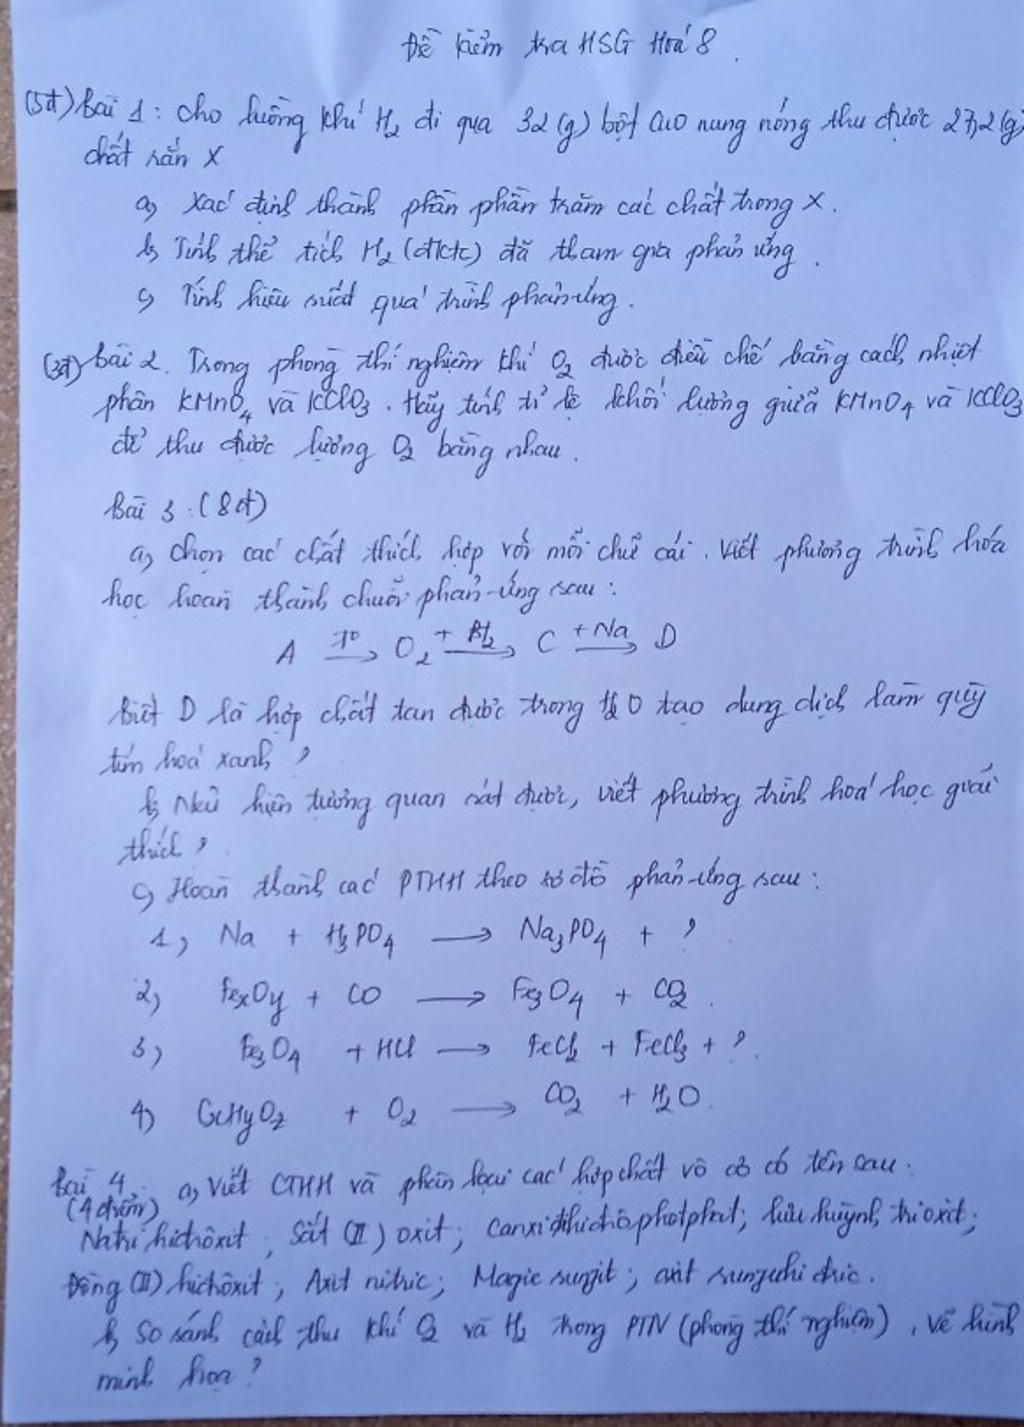 Đề kiểm tra HSG Hoá 8.
(5đ) Bài 1: Cho luồng khí H₂ đi qua 32(g) bột CuO nung nóng thu được 27,2(g)
chất rắn X
a) Xác định thành phần phần trăm các chất trong X.
b) Tính thể tích H₂ (đktc) đã tham gia phản ứng.
c) Tính hiệu suất quá trình phản ứng.
(3đ) Bài 2. Trong phòng thí nghiệm khí O₂ được điều chế bằng cách nhiệt
phân KMnO₄ và KClO₃. Hãy tính tỉ lệ khối lượng giữa KMnO₄ và KClO₃
để thu được lượng O₂ bằng nhau.
Bài 3: (8đ)
a) Chọn các chất thích hợp với mỗi chữ cái. Viết phương trình hóa
học hoàn thành chuỗi phản ứng sau:
A →(T°) O₂ →(+ H₂) C →(+Na) D
Biết D là hợp chất tan được trong H₂O tạo dung dịch làm quỳ
tím hoá xanh?
b) Nêu hiện tượng quan sát được, viết phương trình hoá học giải
thích?
c) Hoàn thành các PTHH theo sơ đồ phản ứng sau:
1) Na + H₃PO₄ → Na₃PO₄ + ?
2) FexOy + CO → Fe₃O₄ + CO₂.
3) Fe₃O₄ + HCl → FeCl₂ + FeCl₃ + ?.
4) CxHyOz + O₂ → CO₂ + H₂O.
Bài 4. a) Viết CTHH và phân loại các hợp chất vô cơ có tên sau:
(4 điểm)
Natri hiđrôxit; Sắt (II) oxit; Canxi đihiđrôphotphat; lưu huỳnh trioxit;
Đồng (II) hiđrôxit; Axit nitric; Magie sunfit; axit sunfuhiđric.
b) So sánh cách thu khí O₂ và H₂ trong PTN (phòng thí nghiệm), vẽ hình
minh họa?